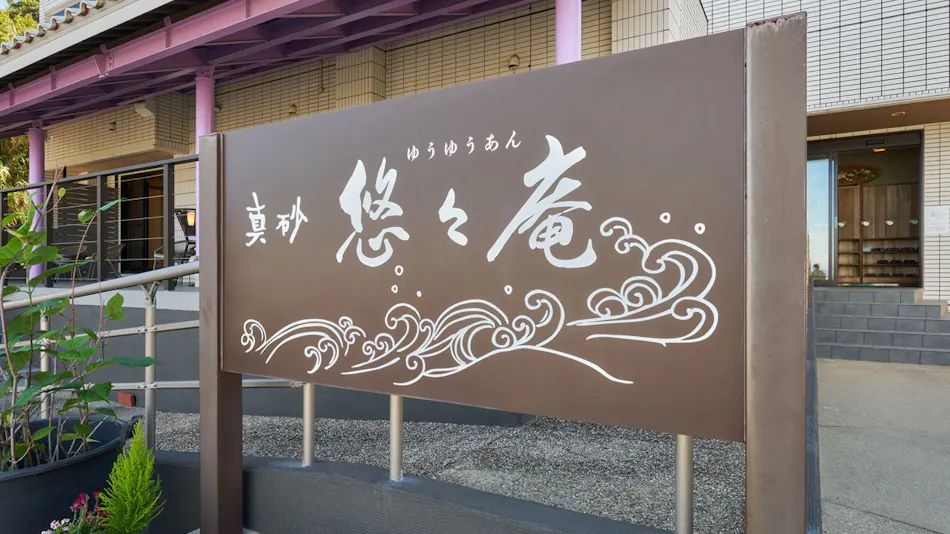 ゆうゆうあん
真砂 悠々庵